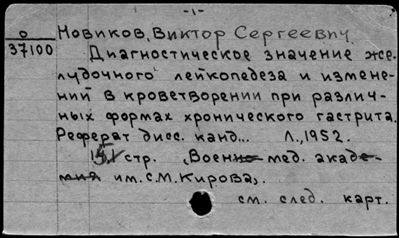 -1-
О
37100
Новиков, Виктор Сергеевич.
Диагностическое значение же-
лудочного лейкопедеза и измене-
ний в кроветворении при различ-
ных формах хронического гастрита.
Реферат дисс. канд... Л., 1952.
стр. „Военно мед. акаде-
мия им. С.М. Кирова„.
см. след. карт.